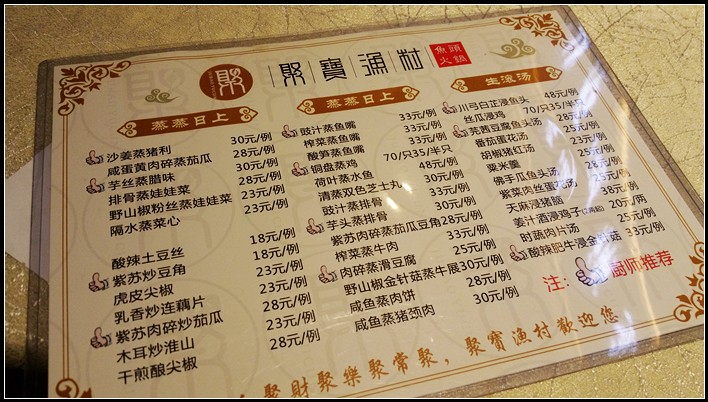 聚
聚寶漁村
魚頭火鍋
蒸蒸日上
沙姜蒸猪利 30元/例
咸蛋黄肉碎蒸茄瓜 28元/例
芋丝蒸腊味 30元/例
排骨蒸娃娃菜 23元/例
野山椒粉丝蒸娃娃菜 28元/例
隔水蒸菜心 23元/例
酸辣土豆丝 18元/例
紫苏炒豆角 18元/例
虎皮尖椒 23元/例
乳香炒连藕片 23元/例
紫苏肉碎炒茄瓜 28元/例
木耳炒淮山 23元/例
干煎酿尖椒 28元/例
蒸蒸日上
豉汁蒸鱼嘴 33元/例
榨菜蒸鱼嘴 33元/例
酸笋蒸鱼嘴 33元/例
铜盘蒸鸡 70/只35/半只
荷叶蒸水鱼 48元/例
清蒸双色芝士丸 30元/例
豉汁蒸排骨 33元/例
芋头蒸排骨 33元/例
紫苏肉碎蒸茄瓜豆角28元/例
榨菜蒸牛肉 33元/例
肉碎蒸滑豆腐 25元/例
野山椒金针菇蒸牛展30元/例
咸鱼蒸肉饼 28元/例
咸鱼蒸猪颈肉 30元/例
生滚汤
川弓白正浸鱼头 48元/例
丝瓜浸鸡 70/只35/半只
芫茜豆腐鱼头汤 28元/例
番茄蛋花汤 25元/例
胡椒猪红汤 25元/例
粟米羹 28元/例
佛手瓜鱼头汤 28元/例
紫菜肉丝蛋花汤 25元/例
天麻浸猪脑 38元/例
姜汁酒浸鸡子 20元/两
时蔬肉片汤 25元/例
酸辣肥牛浸金针菇 33元/例
注: 厨师推荐
聚財聚樂聚常聚，聚寶漁村歡迎您